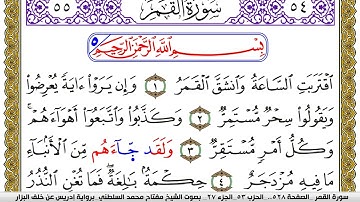 ٥٥ سُورَةُ القَمَرِ ٥٤
بِسْمِ اللَّهِ الرَّحْمَٰنِ الرَّحِيمِ
اقْتَرَبَتِ السَّاعَةُ وَانشَقَّ الْقَمَرُ ١ وَإِن يَرَوْا ءَايَةً يُعْرِضُوا
وَيَقُولُوا سِحْرٌ مُّسْتَمِرٌّ ٢ وَكَذَّبُوا وَاتَّبَعُوا أَهْوَاءَهُمْ ۚ
وَكُلُّ أَمْرٍ مُّسْتَقِرٌّ ٣ وَلَقَدْ جَآءَهُم مِّنَ الْأَنبَاءِ
مَا فِيهِ مُزْدَجَرٌ ٤ حِكْمَةٌ بَالِغَةٌ ۖ فَمَا تُغْنِ النُّذُرُ
سورة القمر الصفحة ٥٢٨ الحزب ٥٣ الجزء ٢٧ بصوت الشيخ مفتاح محمد السلطني برواية إدريس عن خلف البزار